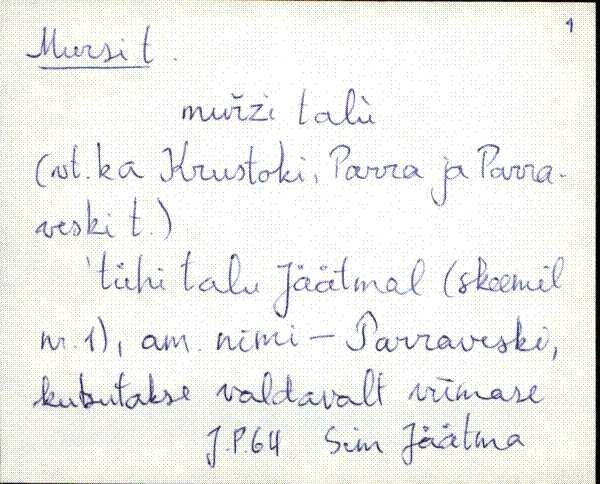 1
Mursi t.
murži talù
(vt. ka Krustoki, Parra ja Parra-
veski t.)
'tühi talu Jäätmal (skeemil
nr. 1), am. nimi – Parraveski,
kutsutakse valdavalt viimase
J.P.64 Siim Jäätma